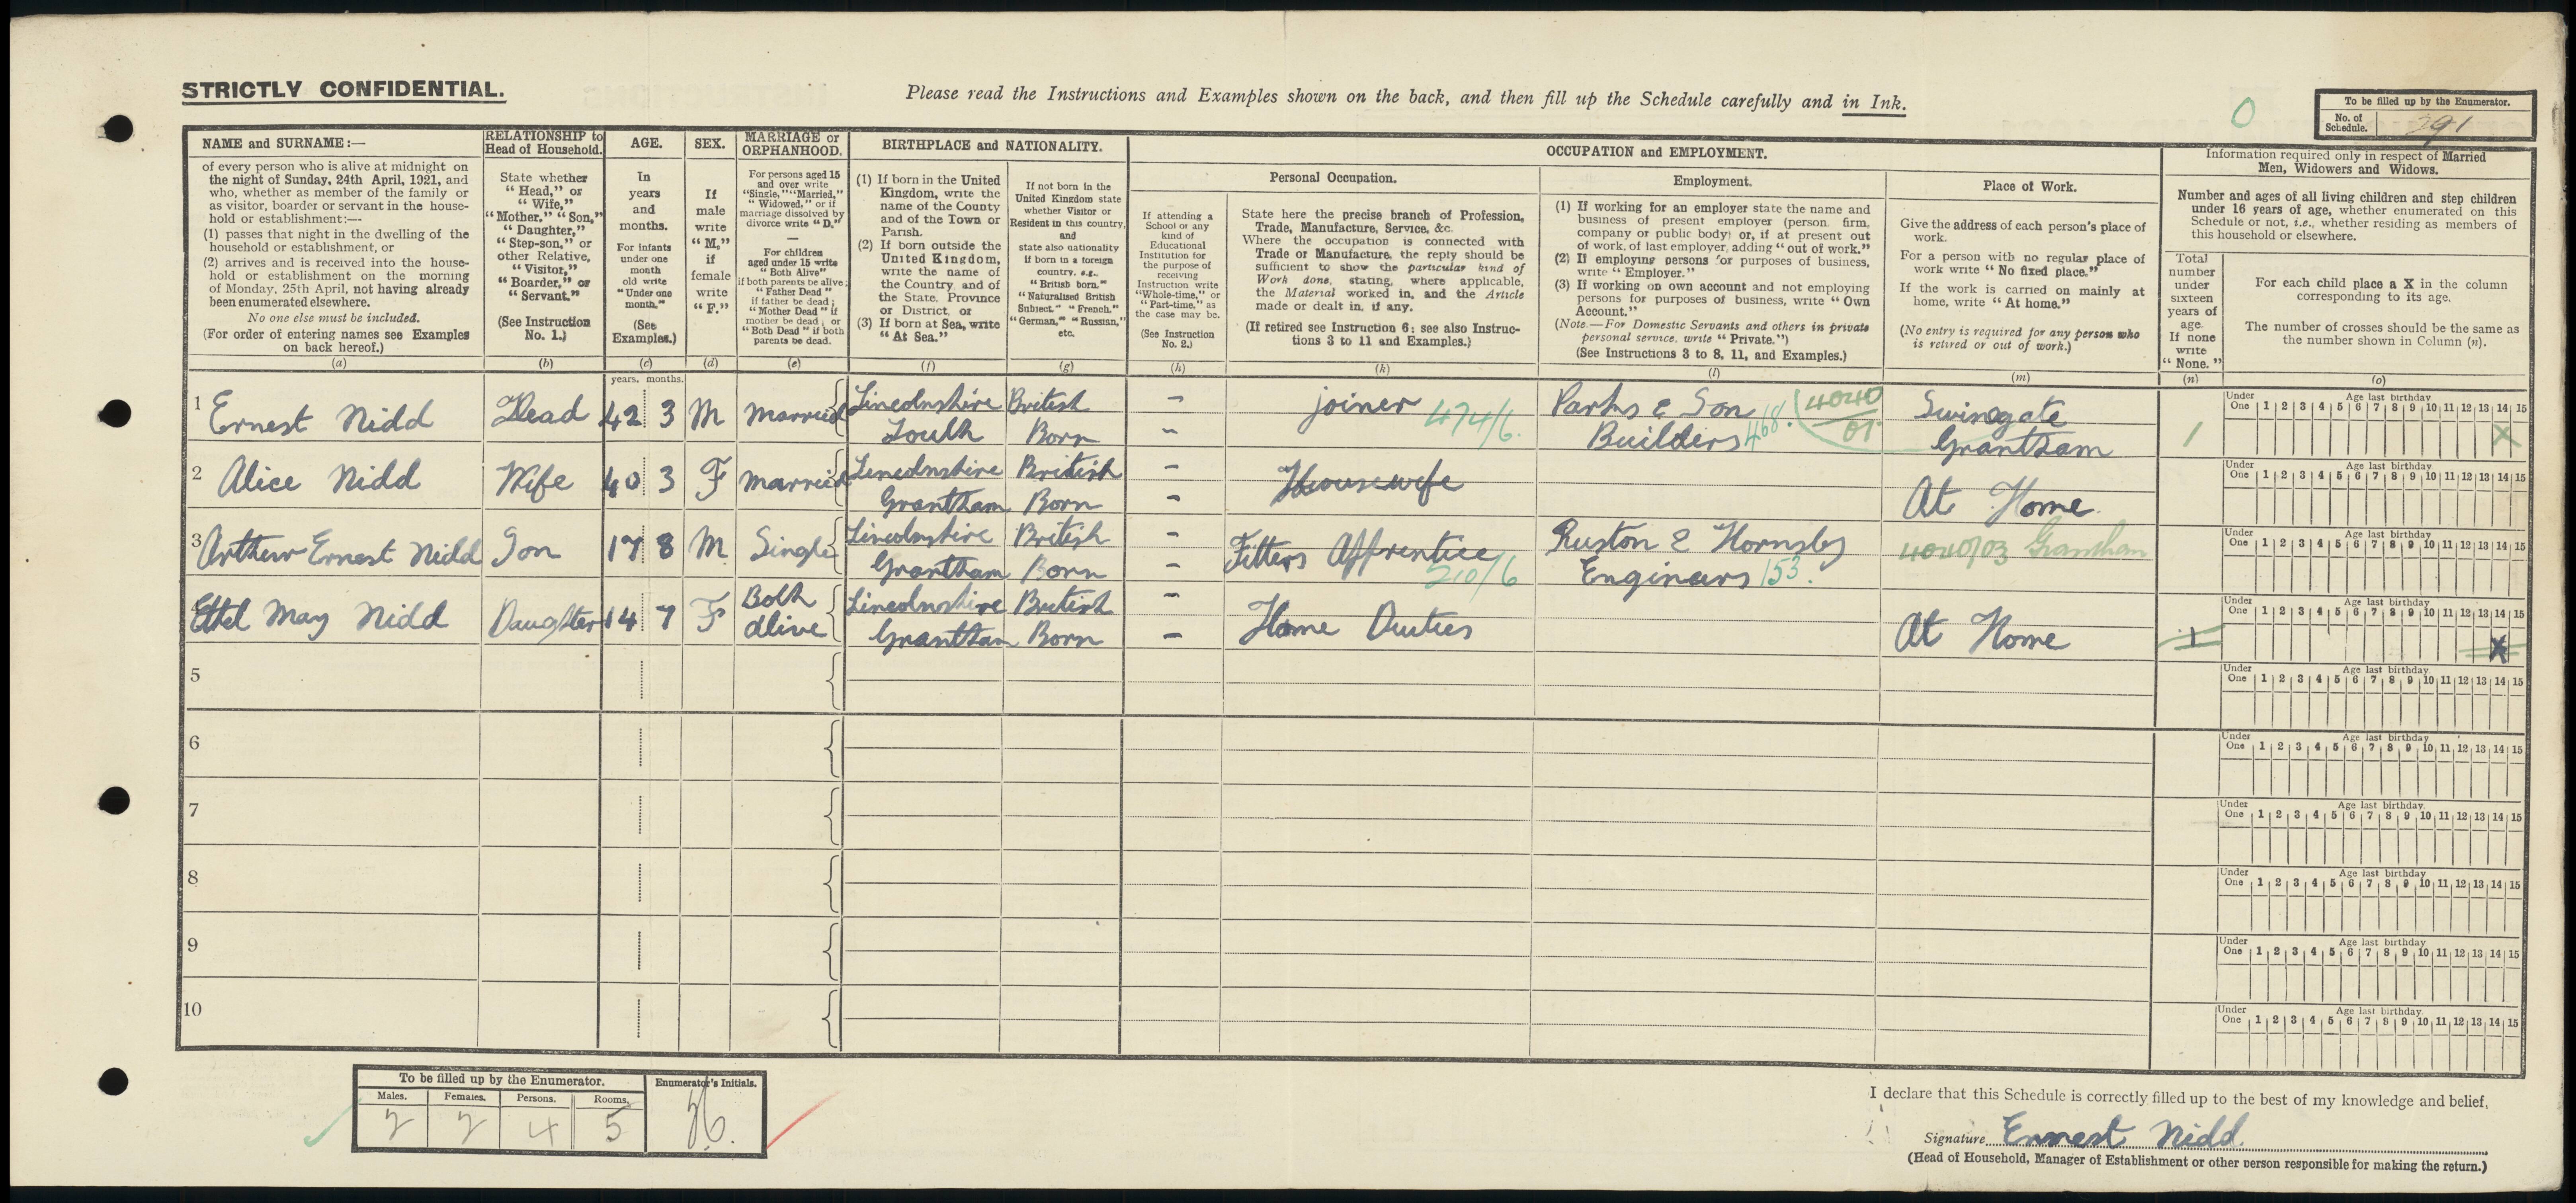 STRICTLY CONFIDENTIAL.
Please read the Instructions and Examples shown on the back, and then fill up the Schedule carefully and in Ink.
0
To be filled up by the Enumerator.
No. of Schedule. 391
NAME and SURNAME:—
of every person who is alive at midnight on
the night of Sunday, 24th April, 1921, and
who, whether as member of the family or
as visitor, boarder or servant in the house-
hold or establishment:—
(1) passes that night in the dwelling of the
household or establishment, or
(2) arrives and is received into the house-
hold or establishment on the morning
of Monday, 25th April, not having already
been enumerated elsewhere.
No one else must be included.
(For order of entering names see Examples
on back hereof.)
(a)
RELATIONSHIP to
Head of Household.
State whether
"Head," or
"Wife,"
"Mother," "Son,"
"Daughter,"
"Step-son," or
other Relative,
"Visitor,"
"Boarder," or
"Servant."
(See Instruction
No. 1.)
(b)
AGE.
In
years
and
months.
For infants
under one
month
old write
"Under one
month."
(See
Examples.)
(c)
SEX.
If
male
write
"M,"
if
female
write
"F."
(d)
MARRIAGE or
ORPHANHOOD.
For persons aged 15
and over write
"Single," "Married,"
"Widowed," or if
marriage dissolved by
divorce write "D."
—
For children
aged under 15 write
"Both Alive"
if both parents be alive;
"Father Dead"
if father be dead;
"Mother Dead" if
mother be dead; or
"Both Dead" if both
parents be dead.
(e)
BIRTHPLACE and NATIONALITY.
(1) If born in the United
Kingdom, write the
name of the County
and of the Town or
Parish.
(2) If born outside the
United Kingdom,
write the name of
the Country, and of
the State, Province
or District, or
(3) If born at Sea, write
"At Sea."
(f)
If not born in the
United Kingdom state
whether Visitor or
Resident in this country,
and
state also nationality
if born in a foreign
country, e.g.,
"British born."
"Naturalised British
Subject." "French."
"German," "Russian,"
etc.
(g)
OCCUPATION and EMPLOYMENT.
If attending a
School or any
kind of
Educational
Institution for
the purpose of
receiving
Instruction write
"Whole-time," or
"Part-time," as
the case may be.
(See Instruction
No. 2.)
(h)
Personal Occupation.
State here the precise branch of Profession,
Trade, Manufacture, Service, &c.
Where the occupation is connected with
Trade or Manufacture, the reply should be
sufficient to show the particular kind of
Work done, stating, where applicable,
the Material worked in, and the Article
made or dealt in, if any.
(If retired see Instruction 6; see also Instruc-
tions 3 to 11 and Examples.)
(k)
Employment.
(1) If working for an employer state the name and
business of present employer (person, firm,
company or public body) or, if at present out
of work, of last employer, adding "out of work."
(2) If employing persons for purposes of business,
write "Employer."
(3) If working on own account and not employing
persons for purposes of business, write "Own
Account."
(Note.—For Domestic Servants and others in private
personal service, write "Private.")
(See Instructions 3 to 8, 11, and Examples.)
(l)
Place of Work.
Give the address of each person's place of
work.
For a person with no regular place of
work write "No fixed place."
If the work is carried on mainly at
home, write "At home."
(No entry is required for any person who
is retired or out of work.)
(m)
Information required only in respect of Married
Men, Widowers and Widows.
Number and ages of all living children and step children
under 16 years of age, whether enumerated on this
Schedule or not, i.e., whether residing as members of
this household or elsewhere.
Total
number
under
sixteen
years of
age.
If none
write
"None."
(n)
For each child place a X in the column
corresponding to its age.
The number of crosses should be the same as
the number shown in Column (n).
(o)
years. months.
1 Ernest Nidd Head 42 3 M Married Lincolnshire British — joiner 474/6. Parks & Son 468. 4040 Swinegate
Louth Born — Builders 01 Grantham 1 X
Under One 1 2 3 4 5 6 7 8 9 10 11 12 13 14 15 Age last birthday
2 Alice Nidd Wife 40 3 F Married Lincolnshire British — Housewife
Grantham Born — At Home
Under One 1 2 3 4 5 6 7 8 9 10 11 12 13 14 15 Age last birthday
3 Arthur Ernest Nidd Son 17 8 M Single Lincolnshire British — Fitters Apprentice Ruston & Hornsby 4040/03 Grantham
Grantham Born — 210/6 Engineers 153.
Under One 1 2 3 4 5 6 7 8 9 10 11 12 13 14 15 Age last birthday
Ethel May Nidd Daughter 14 7 F Both Alive Lincolnshire British — Home Duties
Grantham Born — At Home 1 X
Under One 1 2 3 4 5 6 7 8 9 10 11 12 13 14 15 Age last birthday
5
Under One 1 2 3 4 5 6 7 8 9 10 11 12 13 14 15 Age last birthday
6
Under One 1 2 3 4 5 6 7 8 9 10 11 12 13 14 15 Age last birthday
7
Under One 1 2 3 4 5 6 7 8 9 10 11 12 13 14 15 Age last birthday.
8
Under One 1 2 3 4 5 6 7 8 9 10 11 12 13 14 15 Age last birthday
9
Under One 1 2 3 4 5 6 7 8 9 10 11 12 13 14 15 Age last birthday
10
Under One 1 2 3 4 5 6 7 8 9 10 11 12 13 14 15 Age last birthday
To be filled up by the Enumerator.
Enumerator's Initials.
Males. Females. Persons. Rooms.
2 2 4 5
I declare that this Schedule is correctly filled up to the best of my knowledge and belief,
Signature Ernest Nidd.
(Head of Household, Manager of Establishment or other person responsible for making the return.)